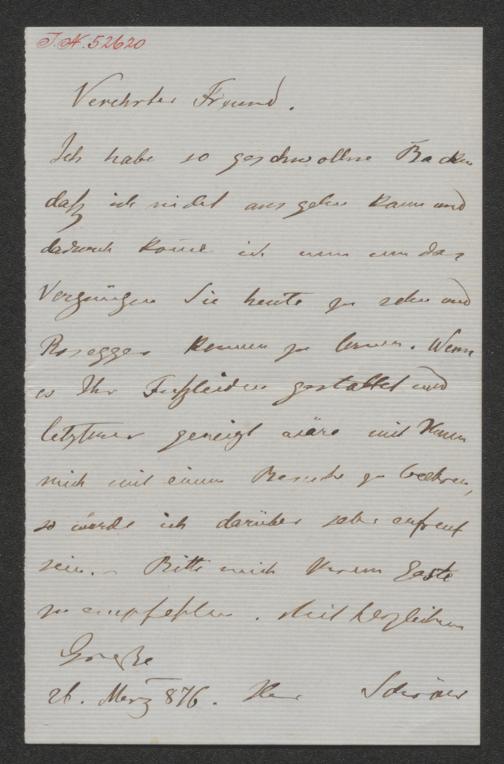 J.N. 52620
Verehrter Freund.
Ich habe so geschwollne Backen
daß ich nicht aus gehen kann und
dadurch kome ich nun um das
Vergnügen Sie heute zu sehn und
Rosegger kennen zu lernen. Wenn
es Ihr Fußleiden gestattet und
letztrer geneigt wäre mit Ihnen
mich mit einem Besuche zu beehren,
so würde ich darüber sehr erfreut
sein. – Bitte mich Ihrem Gaste
zu empfehlen. Mit herzlichem
Gruße
26. Merz 876. Ihr Schröer